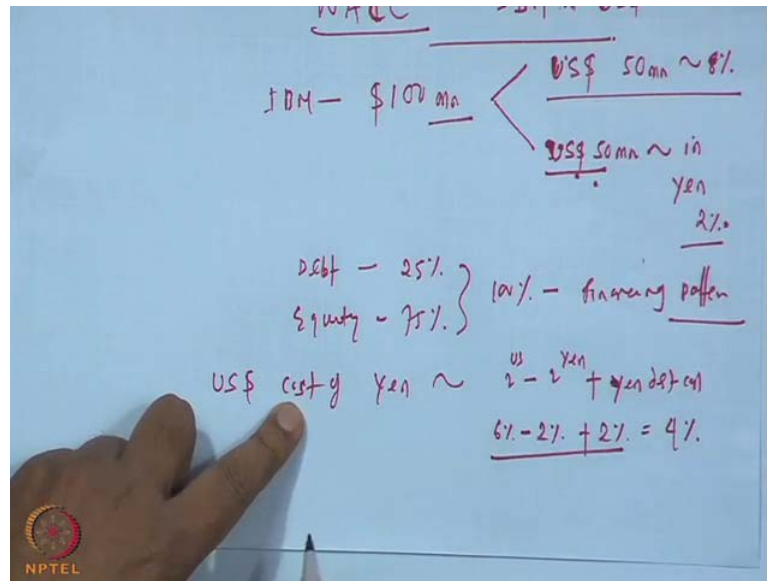 WACC
IBM - $100 mn
US$ 50mn ~ 8%.
US$ 50mn ~ in
yen
2%.
Debt - 25%.
Equity - 75%.
100% - financing patten
US$ cost of yen ~ i US - i Yen + yen debt cost
6% - 2% + 2% = 4%.
NPTEL